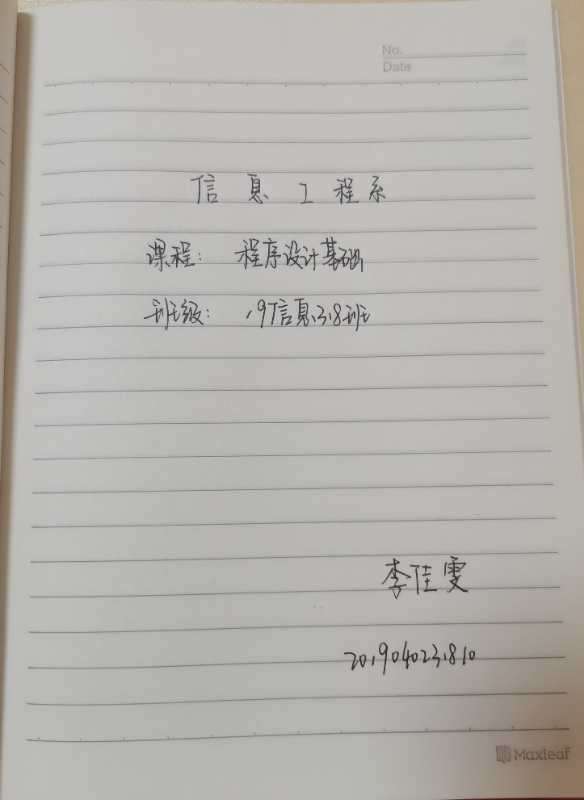 No.
Date
信息工程系
课程: 程序设计基础
班级: 19信息318班
李佳雯
2019040231810
Maxleaf